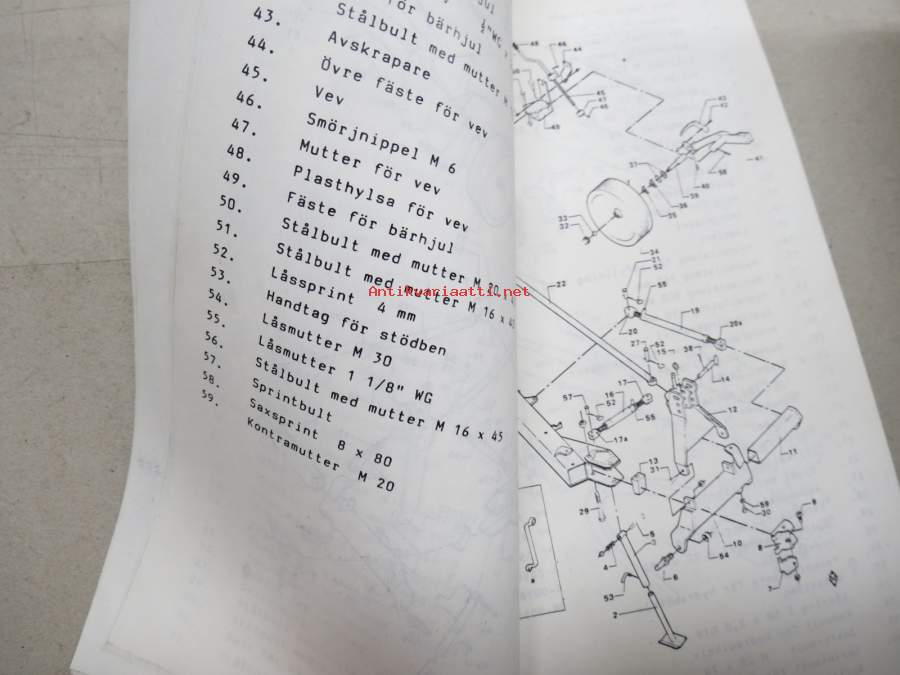 jul
för bärhjul ½"WG
Stålbult med mutter M
43. Avskrapare
44. Övre fäste för vev
45. Vev
46. Smörjnippel M 6
47. Mutter för vev
48. Plasthylsa för vev
49. Fäste för bärhjul
50. Stålbult med mutter M 20 x
51. Stålbult med mutter M 16 x 45
52. Låssprint 4 mm
53. Handtag för stödben
54. Låsmutter M 30
55. Låsmutter 1 1/8" WG
56. Stålbult med mutter M 16 x 45
57. Sprintbult
58. Saxsprint 8 x 80
59. Kontramutter M 20
Antikvariaatti.net
46
44
45
47
48
49
43
42
41
37
58
40
39
36
35
33
32
34
21
52
55
22
19
20
20a
27
52
15
38
14
57
16
52
17
55
17a
12
13
31
11
28
59
30
9
8
10
54
5
3
4
6
7
53
2